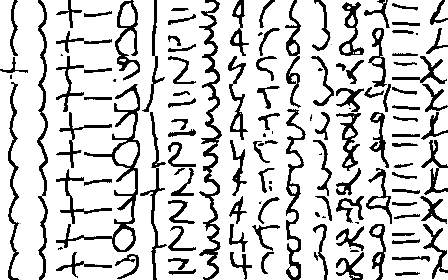 ( ) + - 0 1 2 3 4 5 6 7 8 9 =
( ) + - 0 1 2 3 4 5 6 7 8 9 =
( ) + - 0 1 2 3 4 5 6 7 8 9 = X
( ) + - 0 1 2 3 4 5 6 7 8 9 = X
( ) + - 0 1 2 3 4 5 6 7 8 9 = X
( ) + - 0 1 2 3 4 5 6 7 8 9 = X
( ) + - 0 1 2 3 4 5 6 7 8 9 = X
( ) + - 0 1 2 3 4 5 6 7 8 9 = X
( ) + - 0 1 2 3 4 5 6 7 8 9 = X
( ) + - 0 1 2 3 4 5 6 7 8 9 = X